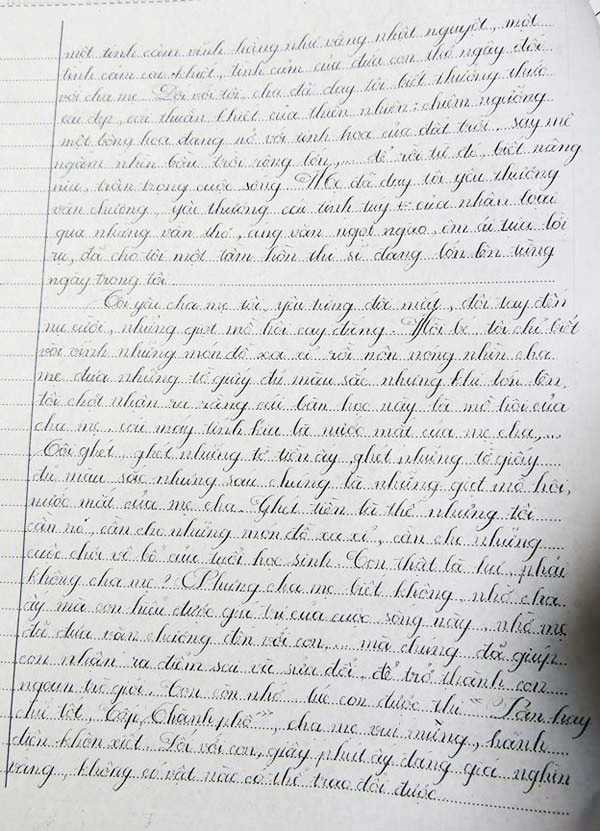 một tình cảm vĩnh hằng như vầng nhật nguyệt, một
tình cảm cao khiết, tình cảm của đứa con thơ ngây đối
với cha mẹ. Đối với tôi, cha đã dạy tôi biết thưởng thức
cái đẹp, cái thuần khiết của thiên nhiên: chiêm ngưỡng
một bông hoa đang nở với tinh hoa của đất trời, say mê
ngắm nhìn bầu trời rộng lớn,... để rồi từ đó, biết nâng
niu, trân trọng cuộc sống. Mẹ đã dạy tôi yêu thương
văn chương, yêu thương cái tinh tuý của nhân loại
qua những vần thơ, áng văn ngọt ngào, êm ái tựa lời
ru, đã cho tôi một tâm hồn thi sĩ đang lớn lên từng
ngày trong tôi.
Tôi yêu cha mẹ tôi, yêu từng đôi mắt, đôi tay đến
nụ cười, những giọt mồ hôi cay đắng. Hồi bé, tôi chỉ biết
vòi vĩnh những món đồ xa xỉ rồi nôn nóng nhìn cha
mẹ đưa những tờ giấy đủ màu sắc nhưng khi lớn lên,
tôi chợt nhận ra rằng cái bàn học này là mồ hôi của
cha mẹ, cái máy tính kia là nước mắt của mẹ cha,...
Tôi ghét, ghét những tờ tiền ấy, ghét những tờ giấy
đủ màu sắc nhưng sau chúng là những giọt mồ hôi,
nước mắt của mẹ cha. Ghét tiền là thế nhưng tôi
cần nó, cần cho những món đồ xa xỉ, cần cho những
cuộc chơi vô bổ của tuổi học sinh. Con thật là hư, phải
không cha mẹ? Nhưng cha mẹ biết không, nhờ cha
ấy mà con hiểu được giá trị của cuộc sống này, nhờ mẹ
đã đưa văn chương đến với con,... mà chúng đã giúp
con nhận ra điểm sai và sửa đổi, để trở thành con
ngoan trò giỏi. Con còn nhớ lúc con được thi "Văn hay
chữ tốt, Cấp Thành phố", cha mẹ vui mừng, hãnh
diện khôn xiết. Đối với con, giây phút ấy đáng giá nghìn
vàng, không có vật nào có thể trao đổi được.